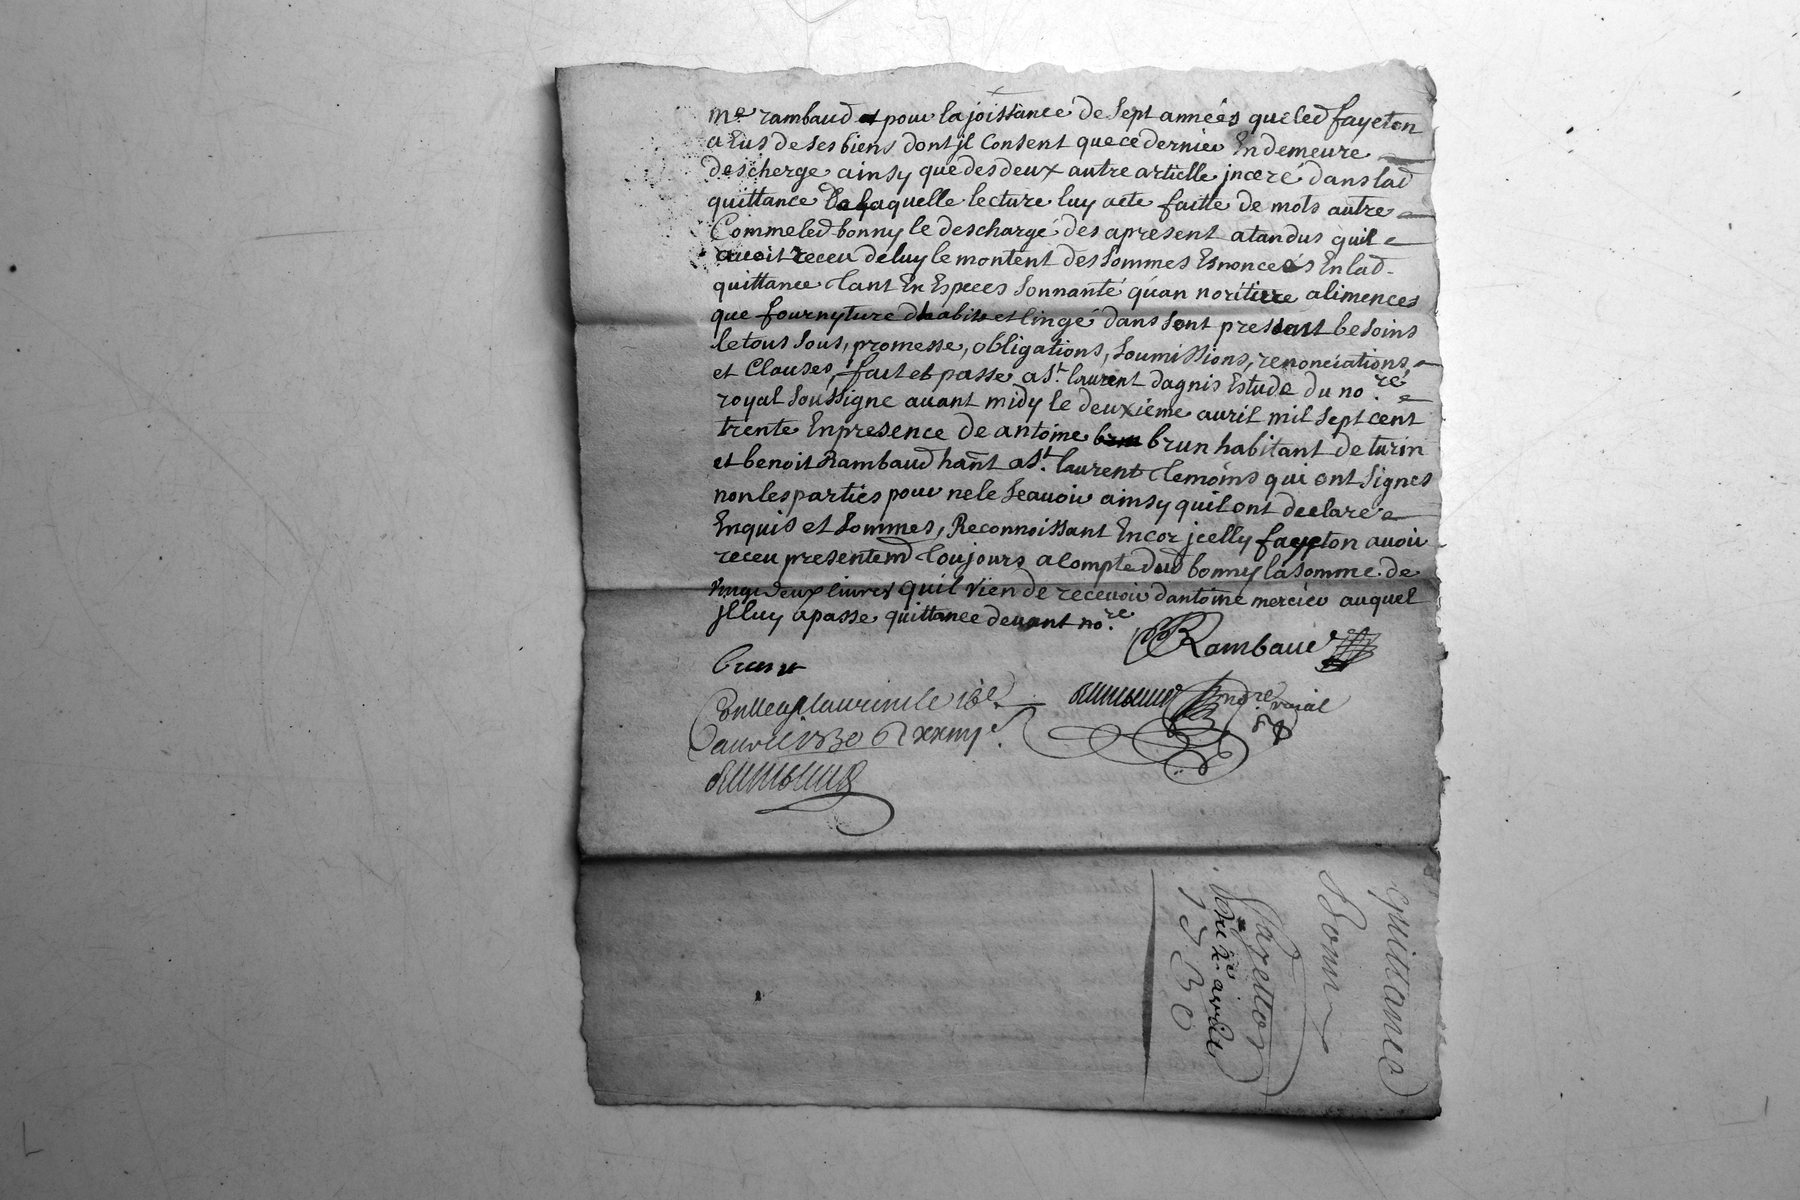 me rambaud et pour la joissance de sept années que led fayeton
a Eus de ses biens dont jl Consent que ce dernier En demeure
descherge ainsy que des deux autre artielle jncere dans lad
quittance De laquelle lecture luy aete faitte de mots autre
Comme led bonny le descharge des apresent atandus quil
avoit receu deluy le montent des sommes Esnoncees En lad
quittance tant En Especes sonnante quan noritiere alimences
que fournyture dhabits et linge dans sont pressant besoins
le tous sous, promesse, obligations, soumissions, renonciations,
et Clauses, fait et passe a St. laurent dagnis Estude du no.re
royal soussigne avant midy le deuxieme avril mil sept cent
trente Enpresence de antoine brun habitant de turin
et benoit Rambaud hant a St. laurent temoins qui ont signes
non les parties pour ne le scavoir ainsy quil ont declare
Enquis et sommes, Reconnoissant Encor jcelly fayeton avoir
receu presentemt toujours a Compte dud bonny la somme de
vingt deux livres quil vien de recevoir dantoine mercier auquel
jl luy a passe quittance devant no.re
Rambaud
brun
rambaud no.re roial
avril 1730
rambaud
quittance
Bonny
fayetton
du 2e avril
1730